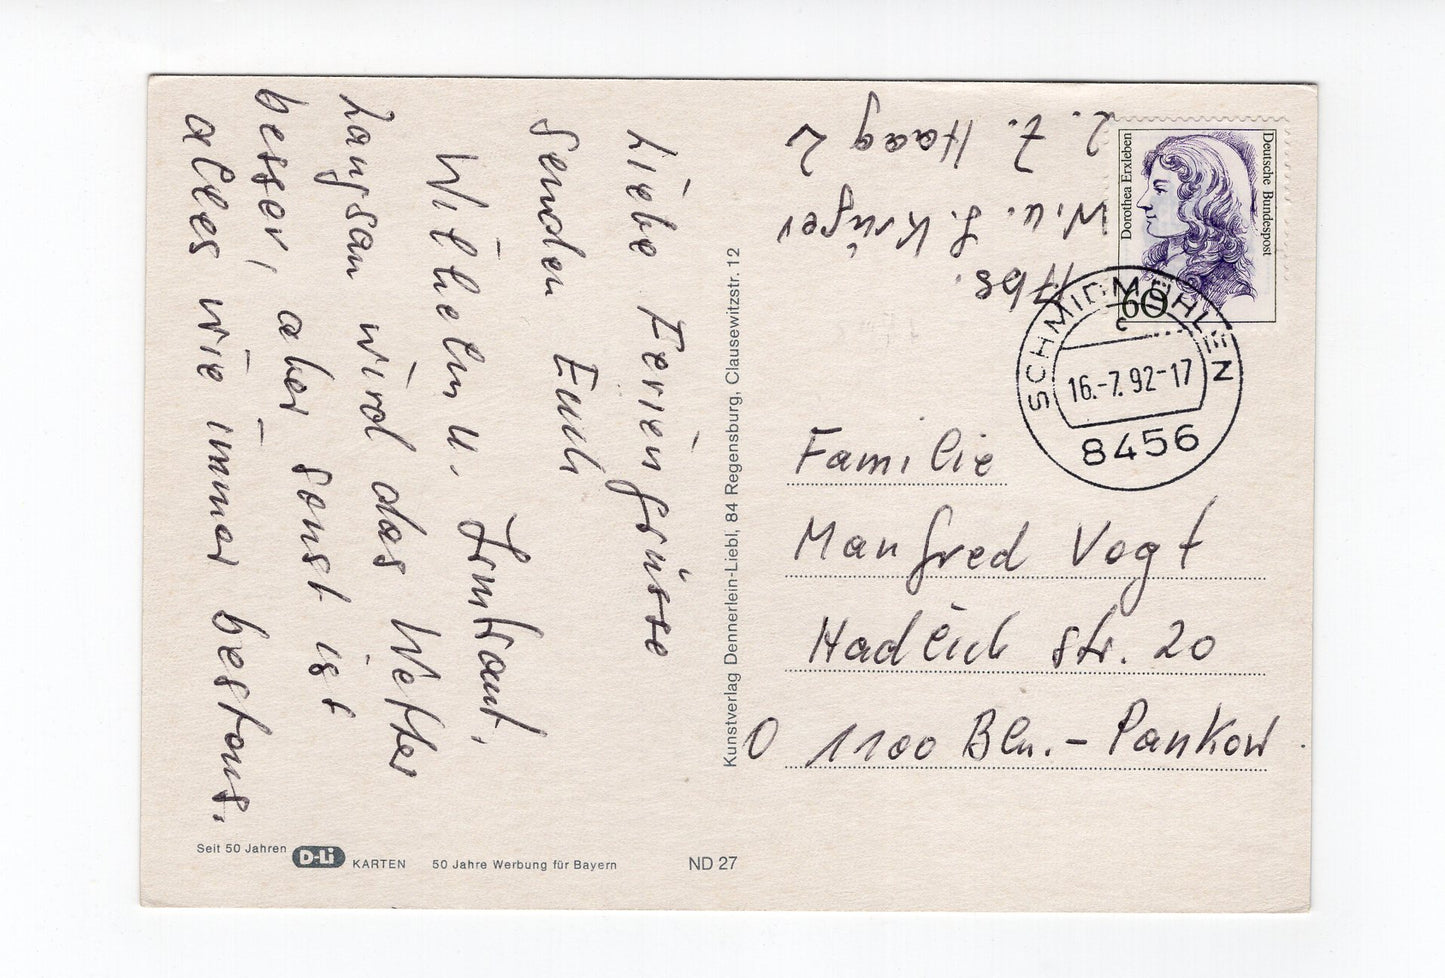 Liebe Feriengrüsse
senden Euch
Wilhelm u. Irmtraut.
Langsam wird das Wetter
besser, aber sonst ist
alles wie immer bestens.
Abs.
W. u. I. Krüger
z. Z. Haag 2
Deutsche Bundespost
Dorothea Erxleben
60
SCHMIDMÜHLEN
c
16.-7.92-17
8456
Familie
Manfred Vogt
Hadlich str. 20
O 1100 Bln. - Pankow
Kunstverlag Dennerlein-Liebl, 84 Regensburg, Clausewitzstr. 12
Seit 50 Jahren D-Li KARTEN 50 Jahre Werbung für Bayern ND 27